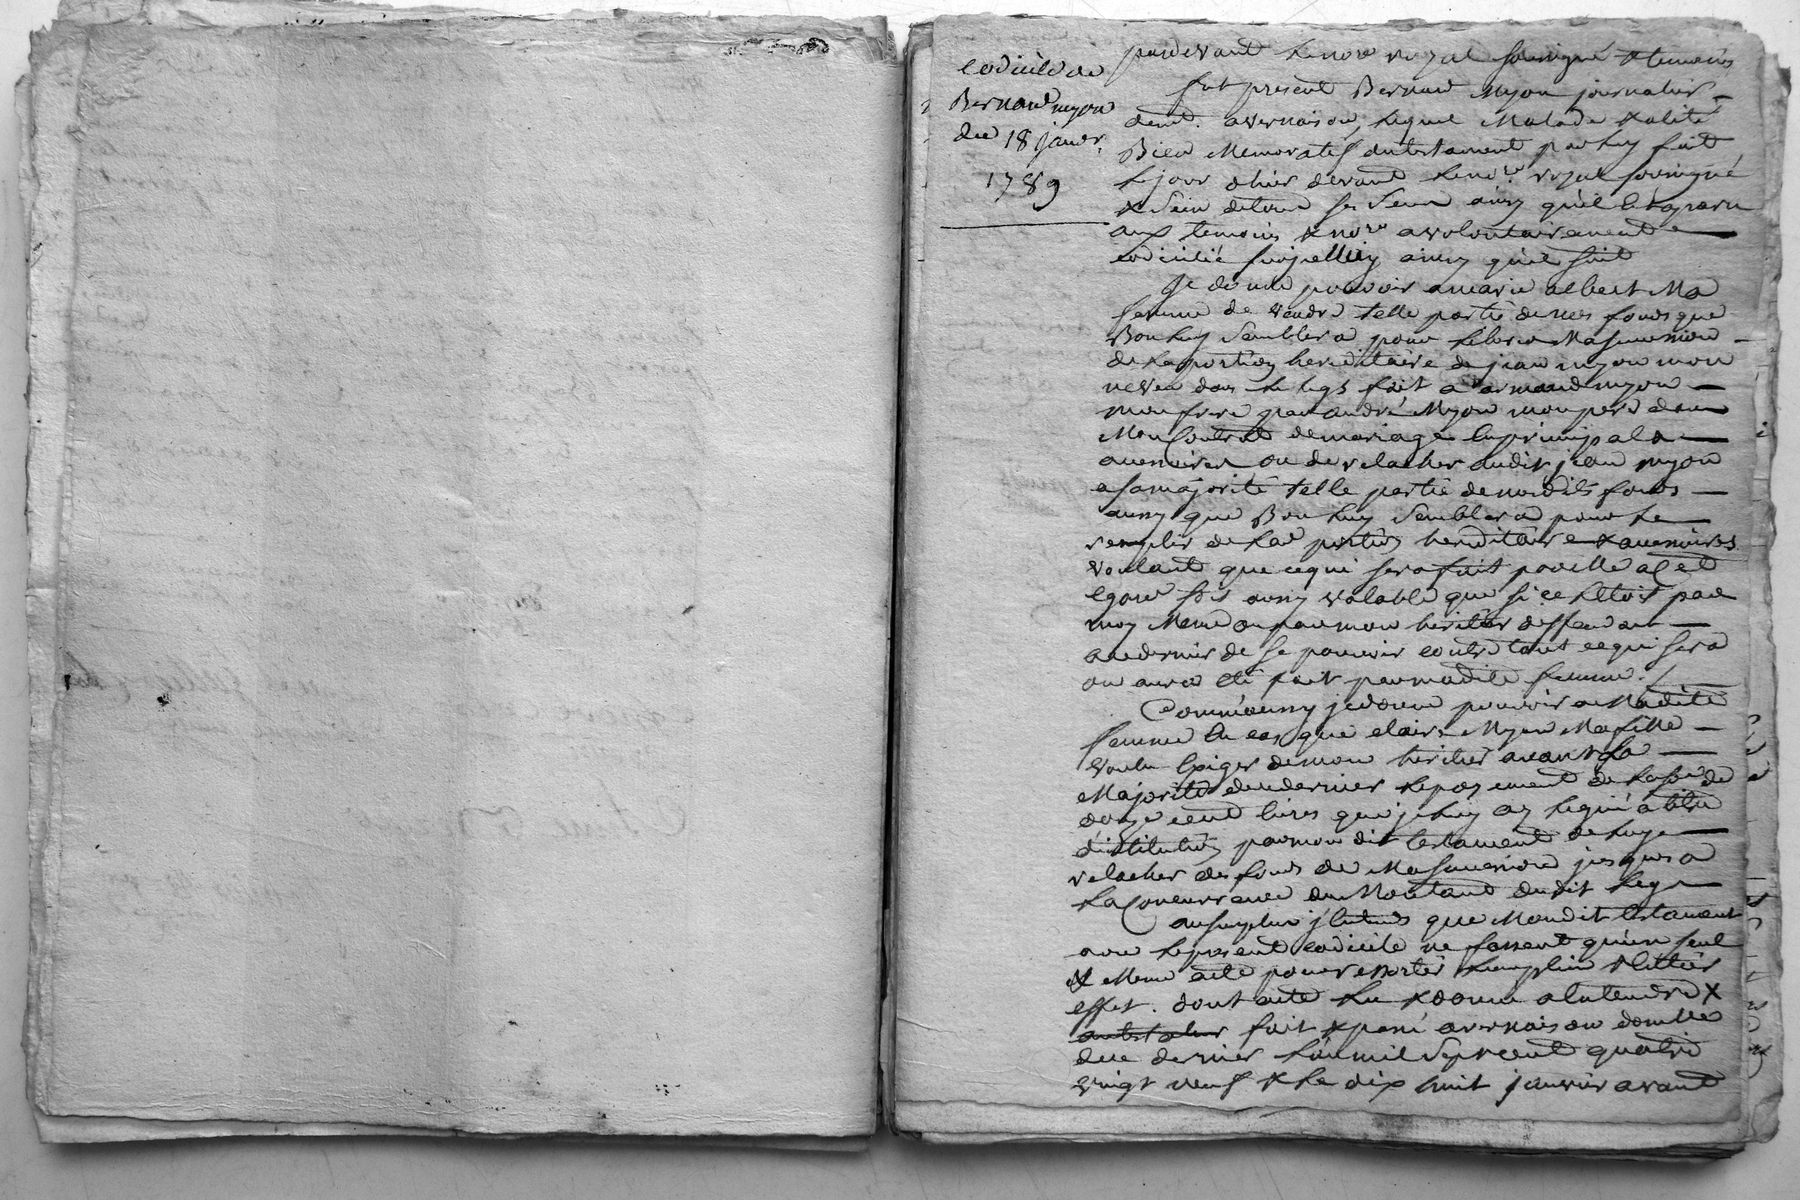 Codicile de
Bernard myon
du 18 janvr.
1789
pardevant le nore royal soussigné & temoins
fut present Bernard Myon journalier
demt. a vernaison, lequel Malade & alité
Bien Memoratif du testament par luy fait
le jour d'hier devant le nore. royal soussigné
& sein de tous ses sens ainsy qu'il l'a aparu
aux temoins & nore a volontairement
codicilié sur jcelluy ainsy qu'il suit
Je donne pouvoir a marie albert Ma
femme de vendre telle partie de mes fonds que
Bon luy semblera pour liberer Ma succession
de la portion hereditaire de jean myon mon
neveu dans le legs fait a armand myon
mon frere par andré Myon mon pere dans
Mon Contrat de mariage en principal &
accessoires ou de relacher audit jean myon
a sa majorité telle partie de mesdits fonds
aussy que Bon luy semblera pour le
remplir de lad portion hereditaire & accessoires
voulant que ce qui sera fait par elle a cet
egard soit aussy valable que si ce l'etoit par
moy Meme ou par mon heritier deffendant
au dernier de se pourvoir contre tout ce qui sera
ou aura été fait par madite femme./
Comme aussy je donne pouvoir a Madite
femme En cas que claire Myon Ma fille
voulu Exiger de mon heritier avant la
Majorité de ce dernier le payement de la somme de
douze cent livres que je luy ay legué a titre
d'institution par mon dit testament de luy
relacher des fonds de Ma succession jusques a
la Concurrence du Montant dudit legs
au surplus j'Entends que Mondit testament
avec le present codicile ne fassent qu'un seul
& Meme acte pour en sortir leur plein & Entier
effet. dont acte lu & donné a Entendre X
au testateur fait & passé a vernaison domlle
du dernier l'an mil sept cent quatre
vingt neuf & le dix huit janvier avant